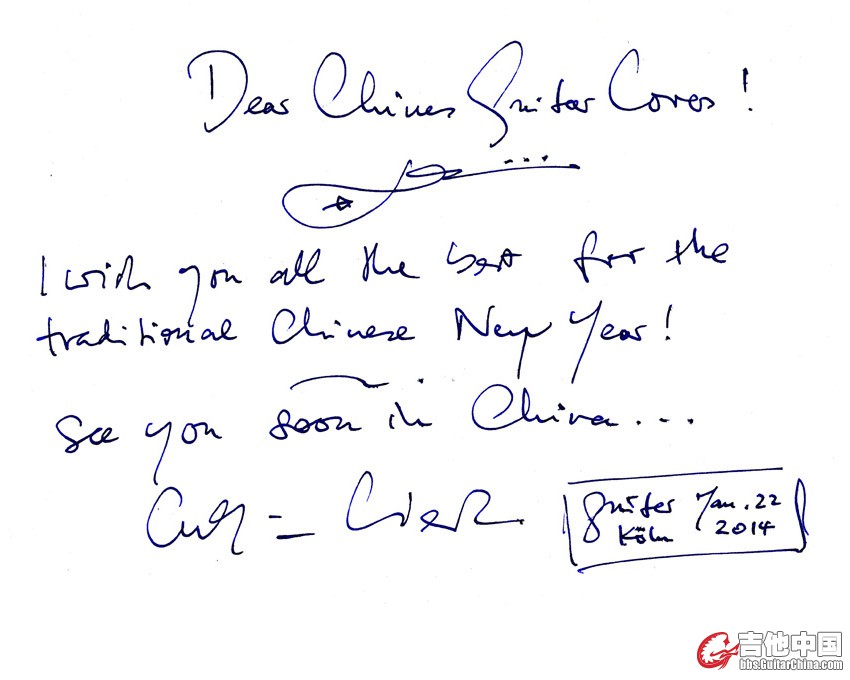 Dear Chines Guitar Lover!
I wish you all the best for the
traditional Chinese New Year!
See you soon in China...
Guitar Jan. 22
Köln 2014
吉他中国
bbs.GuitarChina.com